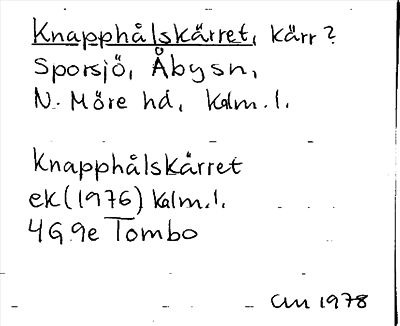 Knapphålskärret, kärr?
Sporsjö, Åbysn,
N. Möre hd, Kalm. l.
Knapphålskärret
ek (1976) Kalm. l.
4G 9e Tombo
CM 1978